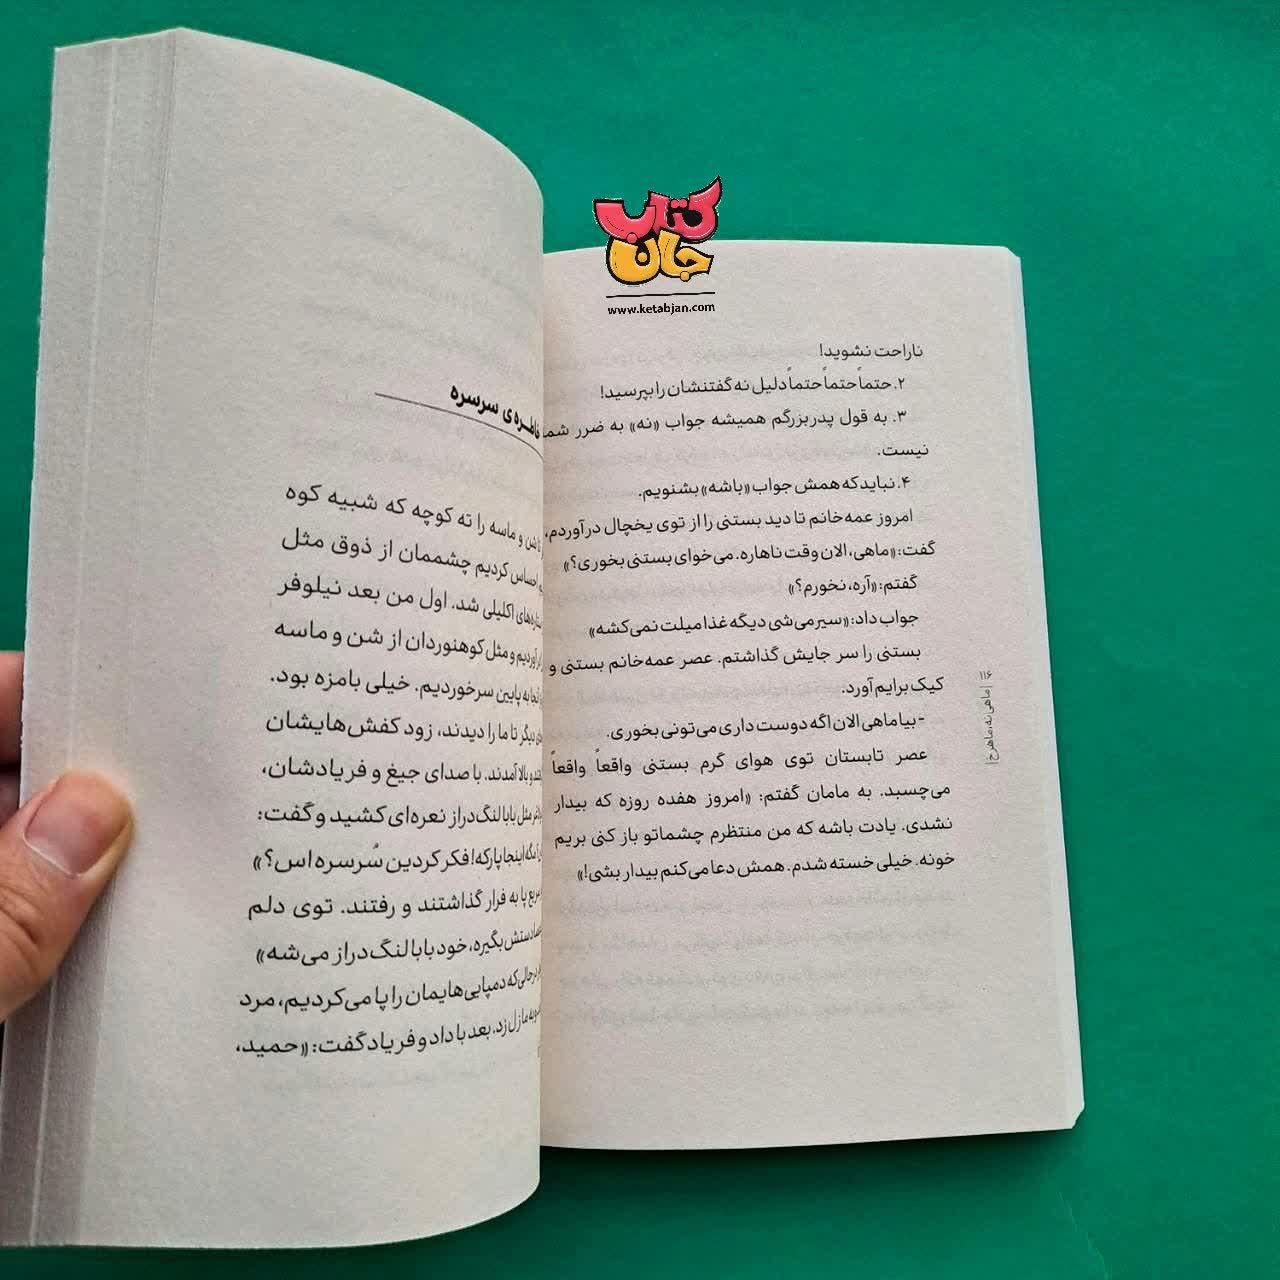 کتاب
جان
www.ketabjan.com
ناراحت نشوید!
۲. حتماً حتماً حتماً دلیل نه گفتنشان را بپرسید!
۳. به قول پدربزرگم همیشه جواب «نه» به ضرر شما
نیست.
۴. نباید که همش جواب «باشه» بشنویم.
امروز عمه‌خانم تا دید بستنی را از توی یخچال درآوردم،
گفت: «ماهی، الان وقت ناهاره. می‌خوای بستنی بخوری؟»
گفتم: «آره، نخورم؟»
جواب داد: «سیر می‌شی دیگه غذا میلت نمی‌کشه»
بستنی را سر جایش گذاشتم. عصر عمه‌خانم بستنی و
کیک برایم آورد.
- بیا ماهی الان اگه دوست داری می‌تونی بخوری.
عصر تابستان توی هوای گرم بستنی واقعاً واقعاً
می‌چسبد. به مامان گفتم: «امروز هفده روزه که بیدار
نشدی. یادت باشه که من منتظرم چشماتو باز کنی بریم
خونه. خیلی خسته شدم. همش دعا می‌کنم بیدار بشی!»
۱۱۶
| ماهی نه، ماهرخ |
خاطره‌ی سرسره
تا شن و ماسه را ته کوچه که شبیه کوه
احساس کردیم چشممان از ذوق مثل
ستاره‌های اکلیلی شد. اول من بعد نیلوفر
درآوردیم و مثل کوهنوردان از شن و ماسه
به پایین سرخوردیم. خیلی بامزه بود.
دیگر تا ما را دیدند، زود کفش‌هایشان
و بالا آمدند. با صدای جیغ و فریادشان،
مثل بابا لنگ‌دراز نعره‌ای کشید و گفت:
مگه اینجا پارکه! فکر کردین سُرسره اس؟»
سریع پا به فرار گذاشتند و رفتند. توی دلم
دستش بگیره، خود بابا لنگ‌دراز می‌شه»
درحالی‌که دمپایی‌هایمان را پا می‌کردیم، مرد
به ما زل زد. بعد با داد و فریاد گفت: «حمید،